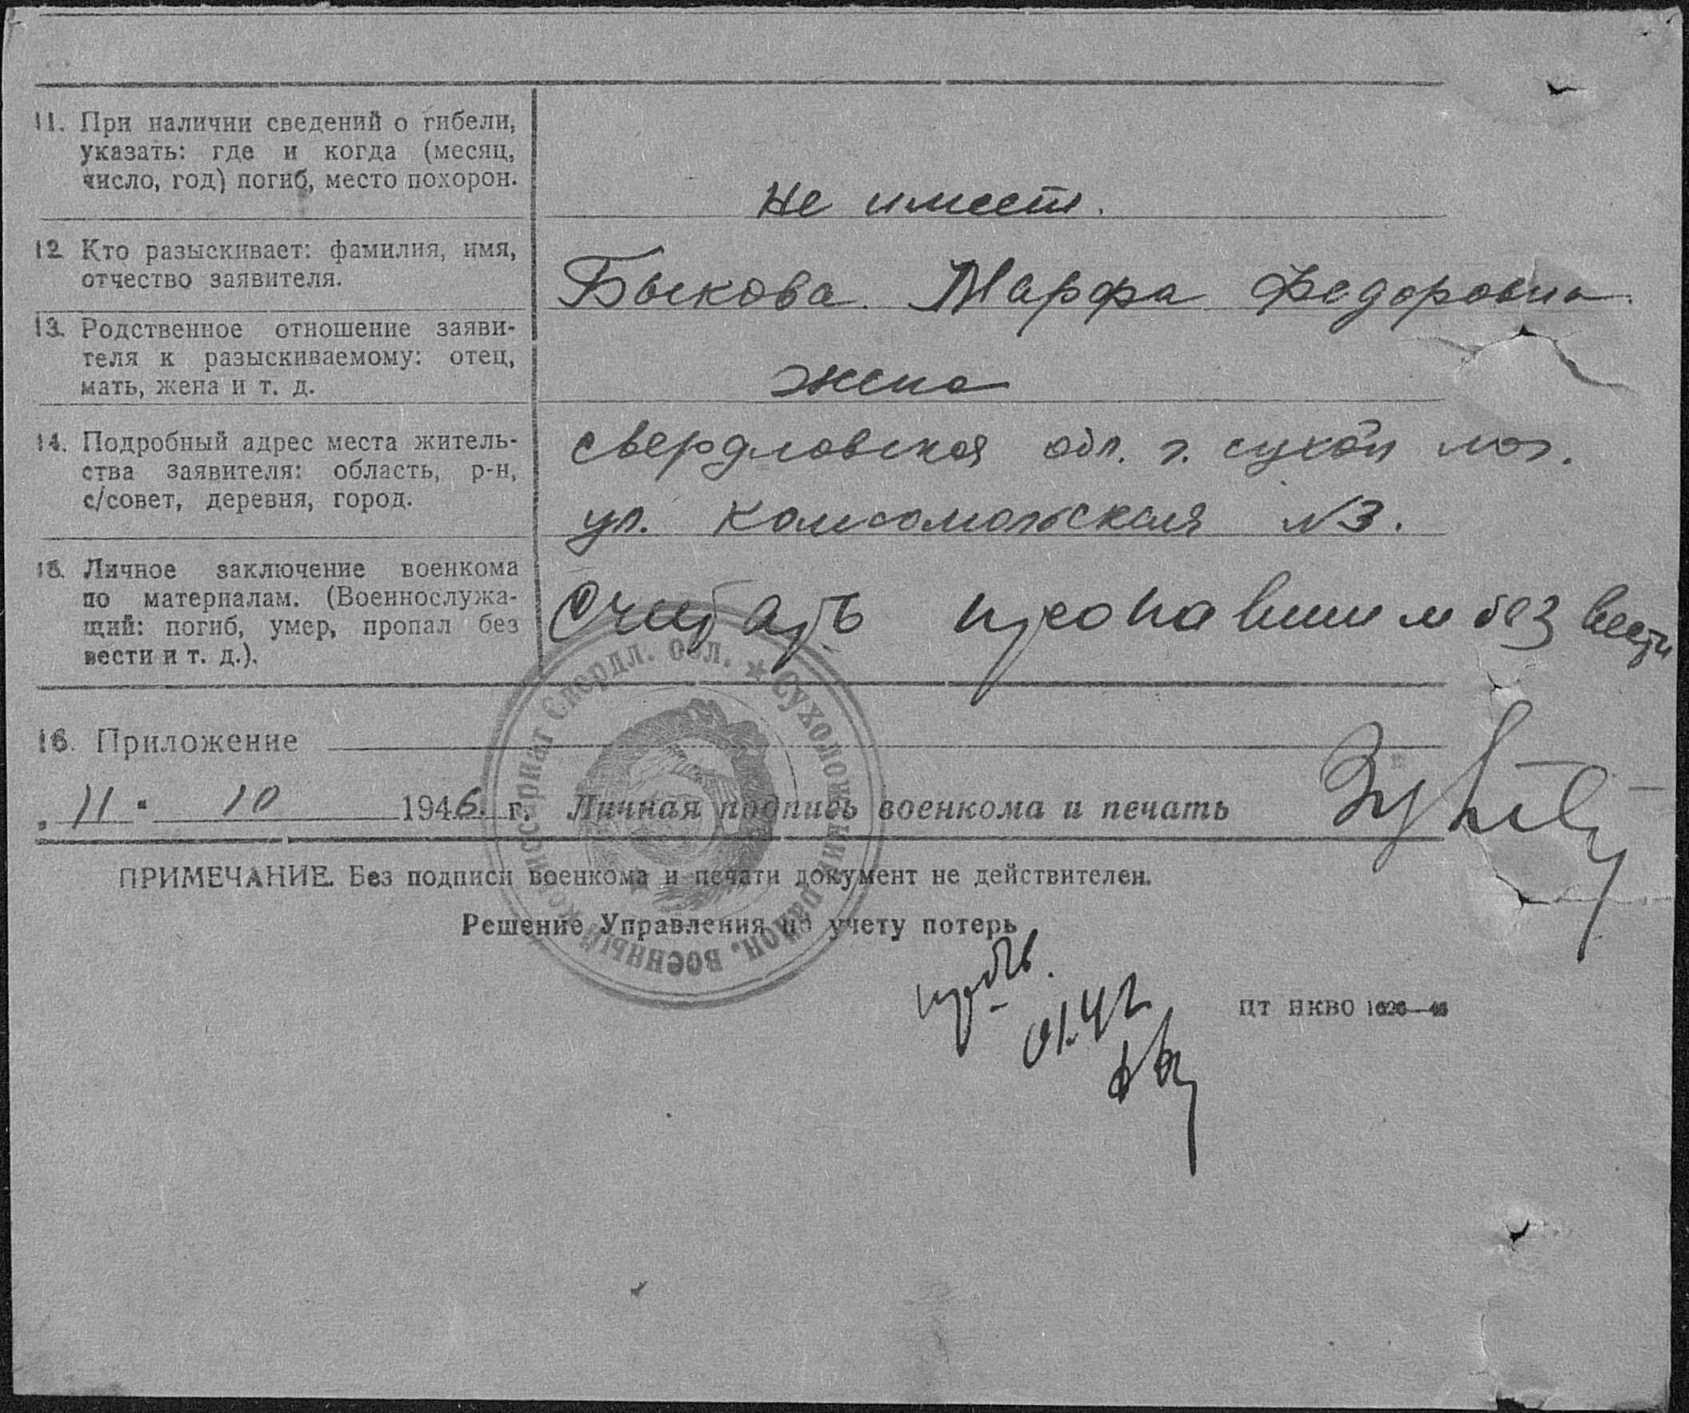 11. При наличии сведений о гибели,
указать: где и когда (месяц,
число, год) погиб, место похорон.
Не имеет.
12. Кто разыскивает: фамилия, имя,
отчество заявителя.
Быкова Марфа Федоровна
13. Родственное отношение заяви-
теля к разыскиваемому: отец,
мать, жена и т. д.
жена
14. Подробный адрес места житель-
ства заявителя: область, р-н,
с/совет, деревня, город.
Свердловская обл. г. Сухой лог.
ул. Комсомольская №3.
15. Личное заключение военкома
по материалам. (Военнослужа-
щий: погиб, умер, пропал без
вести и т. д.).
Считать пропавшим без вести
16. Приложение
11. 10 1946 г. Личная подпись военкома и печать
ПРИМЕЧАНИЕ. Без подписи военкома и печати документ не действителен.
Решение Управления по учету потерь
01.42
ЦТ НКВО
Военный комиссариат Свердл. обл. ★ Сухоложский район.